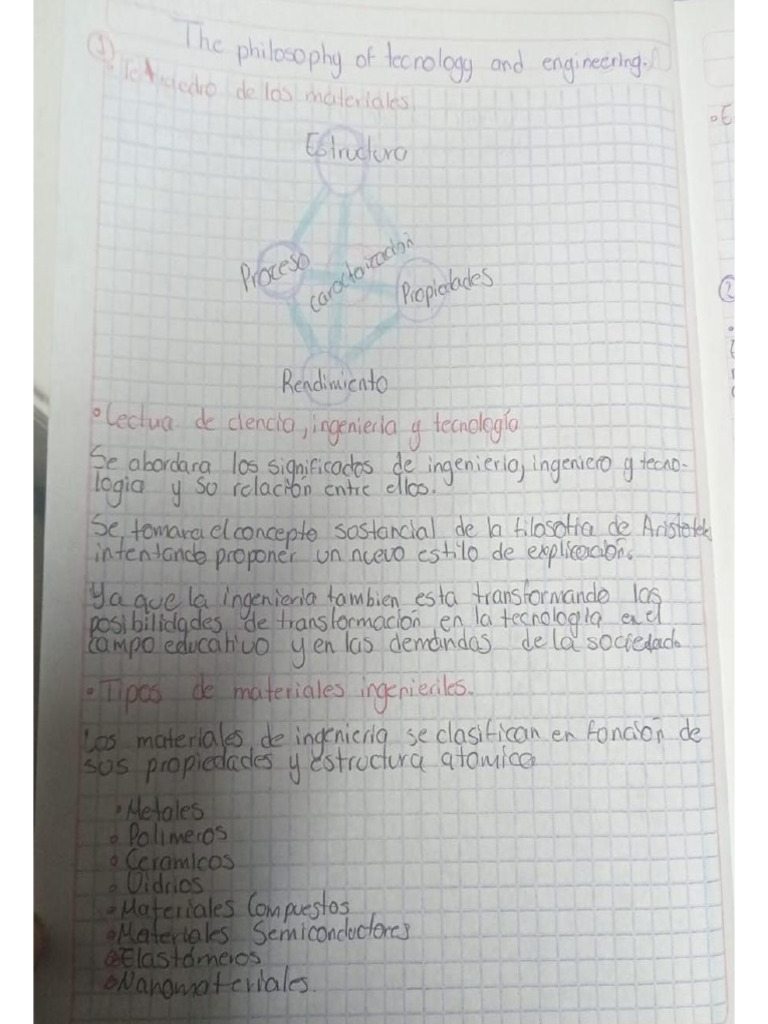 The philosophy of tecnology and engineering.
① Tetraedro de los materiales
Estructura
Proceso
caracterización
Propiedades
Rendimiento
• Lectua de ciencia, ingenieria y tecnología
Se abordara los significados de ingenieria, ingeniero y tecno-
logia y su relación entre ellos.
Se tomara el concepto sustancial de la filosofia de Aristotel
intentando proponer un nuevo estilo de explicación.
Ya que la ingenieria tambien esta transformando las
posibilidades de transformación en la tecnologia en el
campo educativo y en las demandas de la sociedad.
• Tipos de materiales ingenieriles.
Los materiales de ingenieria se clasifican en función de
sus propiedades y estructura atomica
• Metales
• Polimeros
• Ceramicos
• Vidrios
• Materiales Compuestos
• Materiales Semiconductores
• Elastómeros
• Nanomateriales.